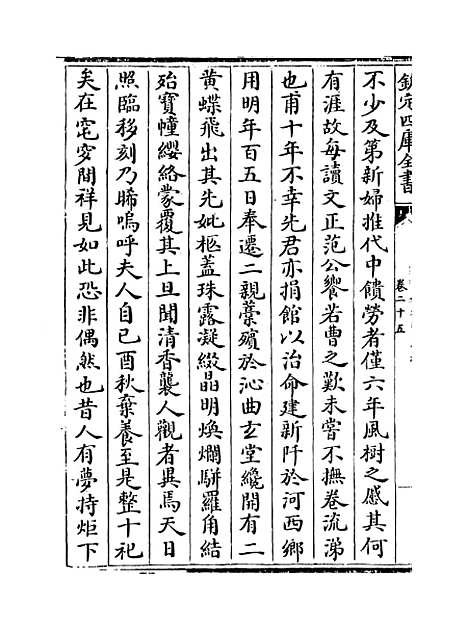 欽定四庫全書
卷二十五
不少及第新婦推代中饋勞者僅六年風樹之感其何
有涯故每讀文正范公饗若曹之歎未嘗不撫卷流涕
也甫十年不幸先君亦捐館以治命建新阡於河西鄉
用明年百五日奉遷二親藁殯於沁曲玄堂纔開有二
黄蝶飛出其先妣柩蓋珠露凝綴晶明煥爛駢羅角結
殆寶幢纓絡蒙覆其上且聞清香襲人觀者異焉天日
照臨移刻乃晞嗚呼夫人自己酉秋棄養至是整十祀
矣在窀穸間祥見如此恐非偶然也昔人有夢持炬下